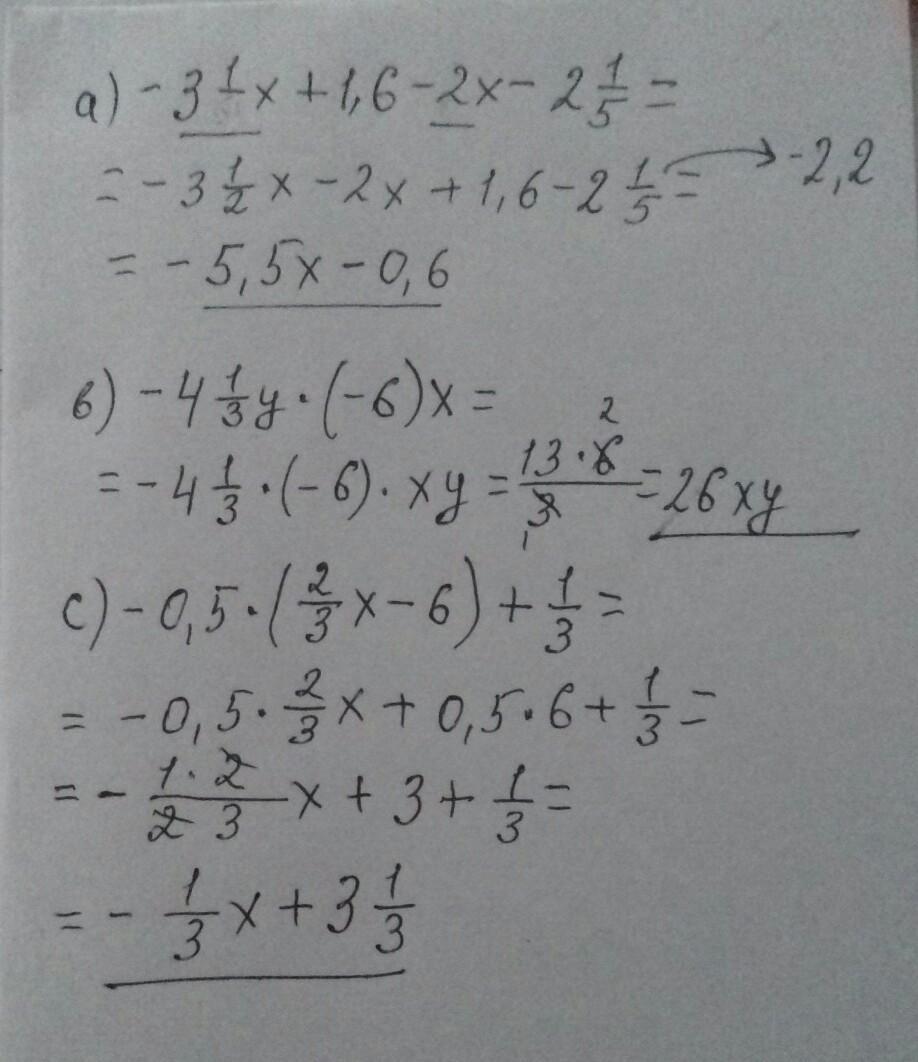 a) - 3 1/ x + 1,6 - 2x - 2 1/5 =
= - 3 1/2 x - 2x + 1,6 - 2 1/5 = → -2,2
= - 5,5x - 0,6
в) - 4 1/3 y · (-6)x =
= - 4 1/3 · (-6) · xy = 13 · 6 2 / 3 1 = 26 xy
c) - 0,5 · (2/3 x - 6) + 1/3 =
= - 0,5 · 2/3 x + 0,5 · 6 + 1/3 =
= - 1 · 2 / 2 3 x + 3 + 1/3 =
= - 1/3 x + 3 1/3